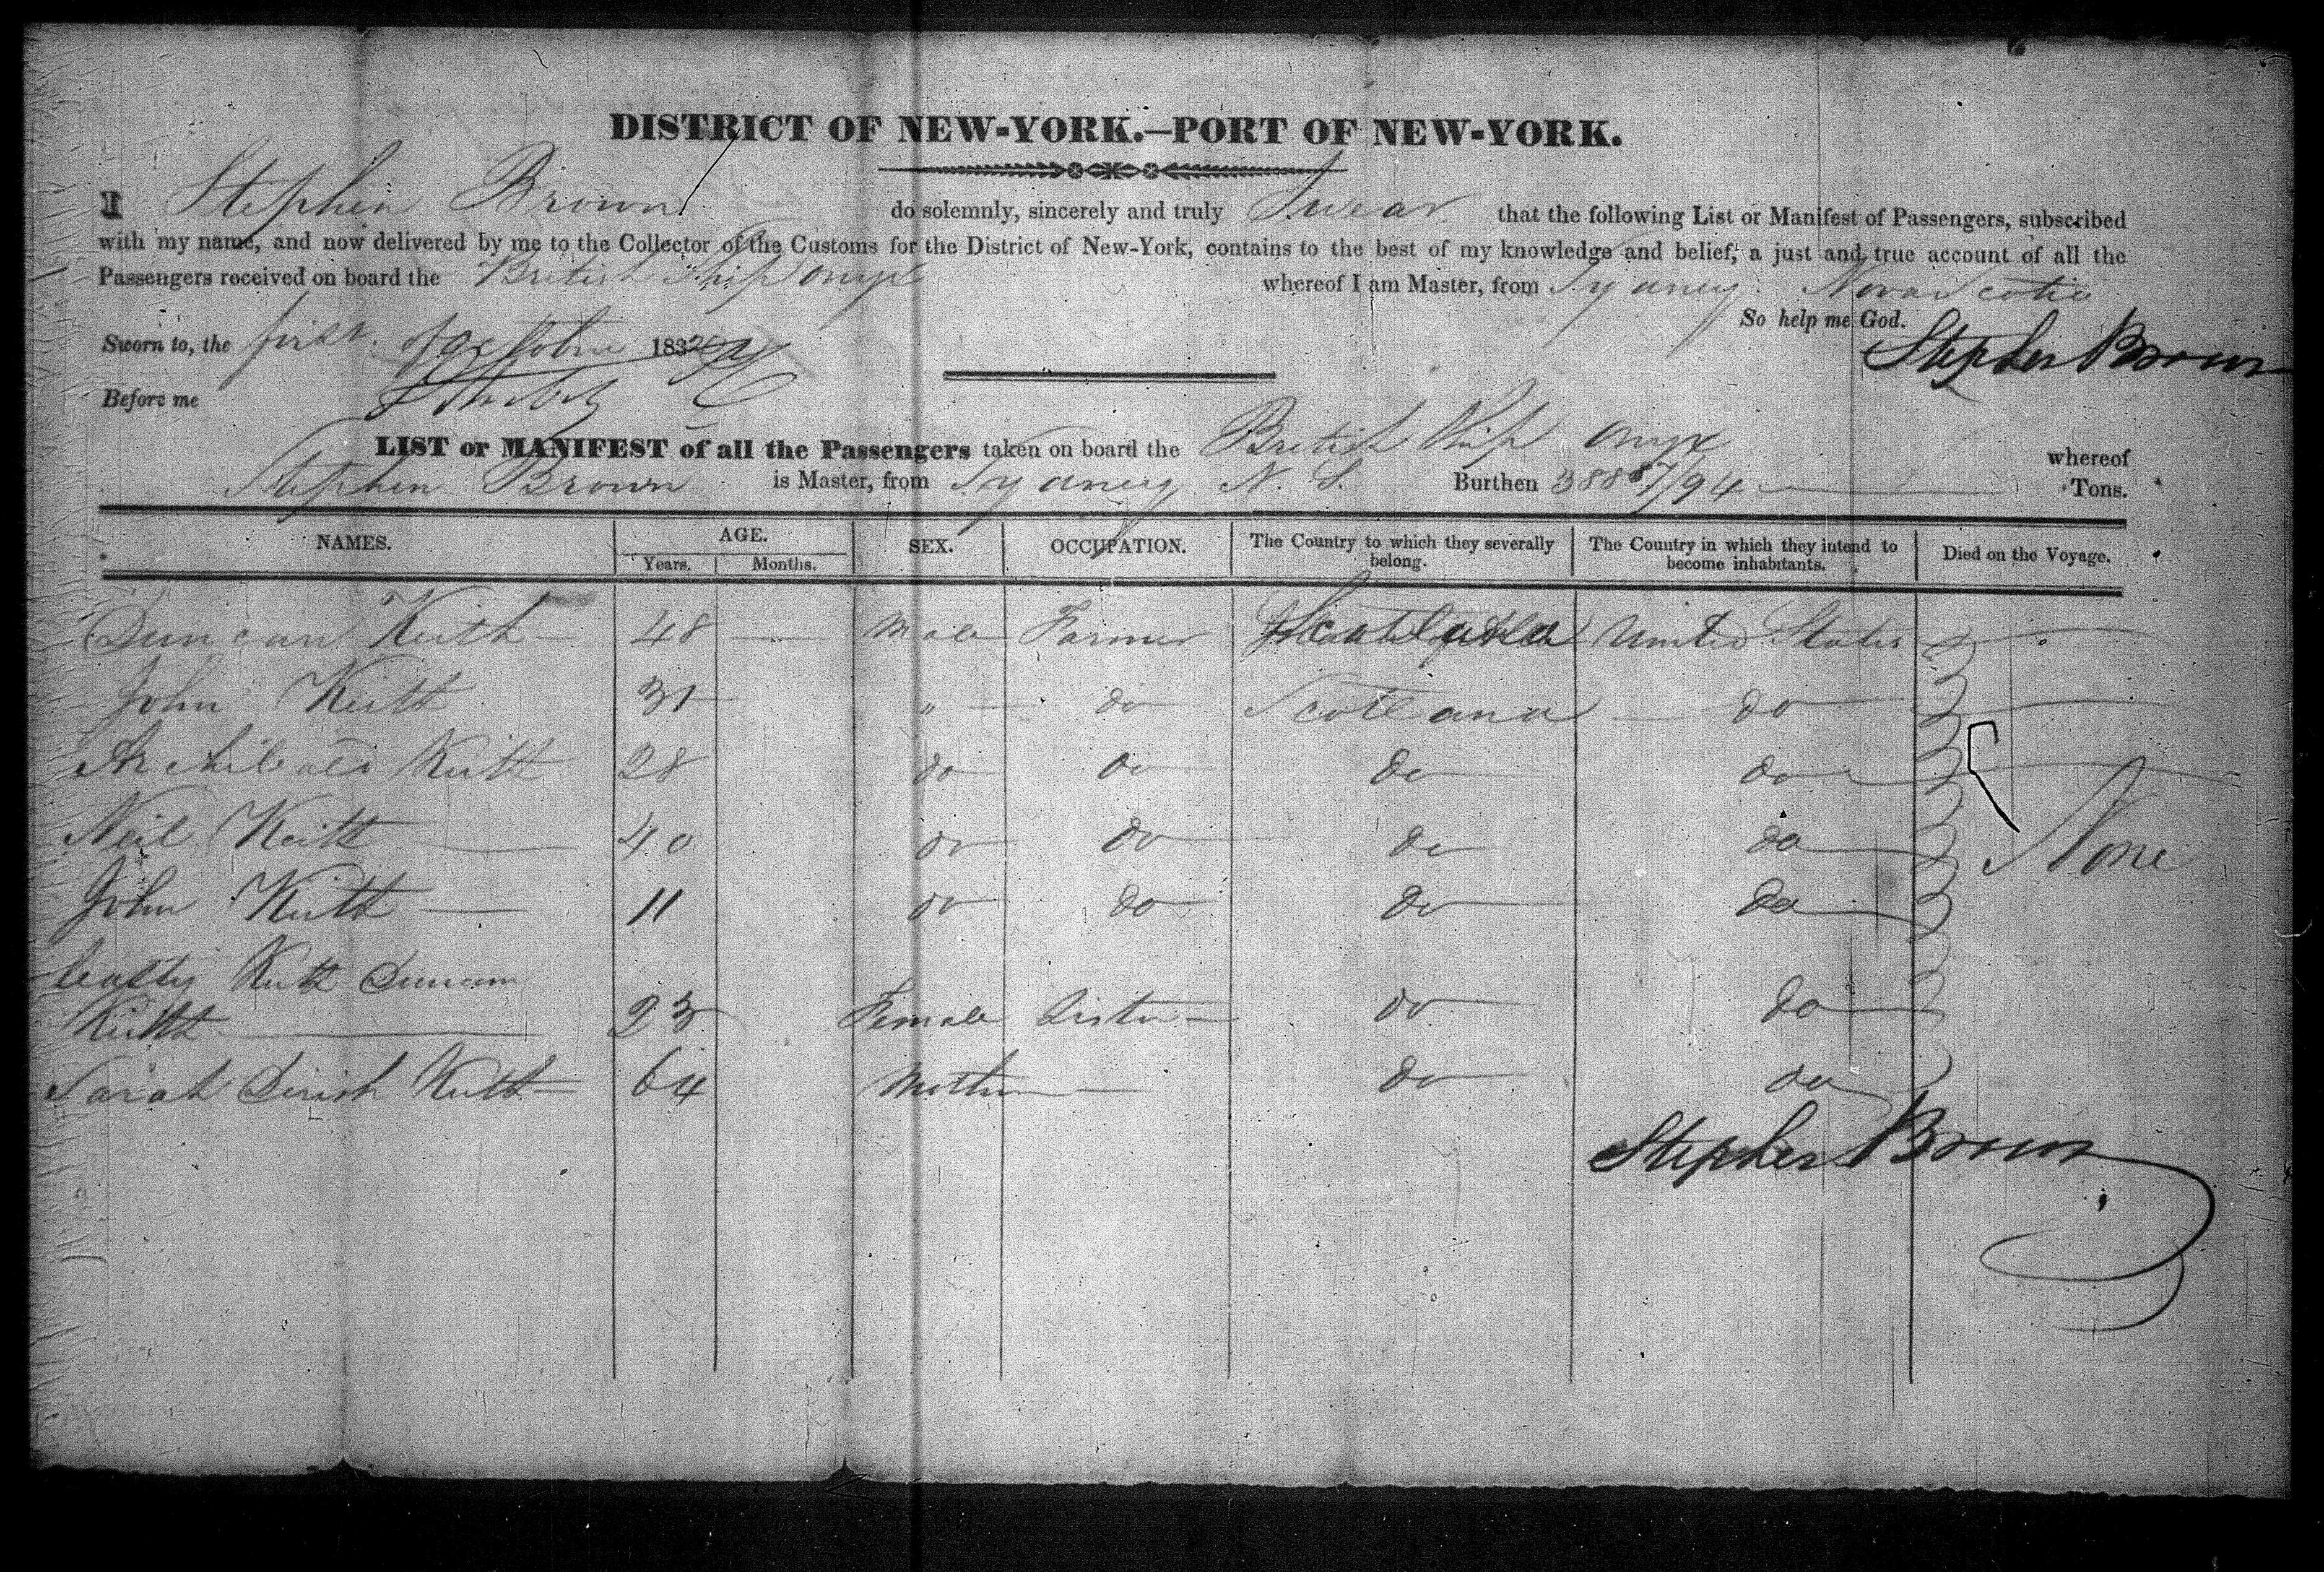 DISTRICT OF NEW-YORK.—PORT OF NEW-YORK.
I Stephen Brown do solemnly, sincerely and truly Swear that the following List or Manifest of Passengers, subscribed
with my name, and now delivered by me to the Collector of the Customs for the District of New-York, contains to the best of my knowledge and belief, a just and true account of all the
Passengers received on board the British Ship Onyx whereof I am Master, from Sydney Nova Scotia
So help me God.
Sworn to, the first of October 183 Stephen Brown
Before me
LIST or MANIFEST of all the Passengers taken on board the British Ship Onyx whereof
Stephen Brown is Master, from Sydney N. S. Burthen 388 87/94 Tons.
NAMES. AGE. Years. Months. SEX. OCCUPATION. The Country to which they severally belong. The Country in which they intend to become inhabitants. Died on the Voyage.
Duncan Keith 48 Male Farmer Scotland United States
John Keith 31 " do Scotland do
Archibald Keith 28 do do do do
Neil Keith 40 do do do do None
John Keith 11 do do do do
Keith Duncan
Keith 23 Female Sister do do
Sarah Keith 64 Mother do do
Stephen Brown